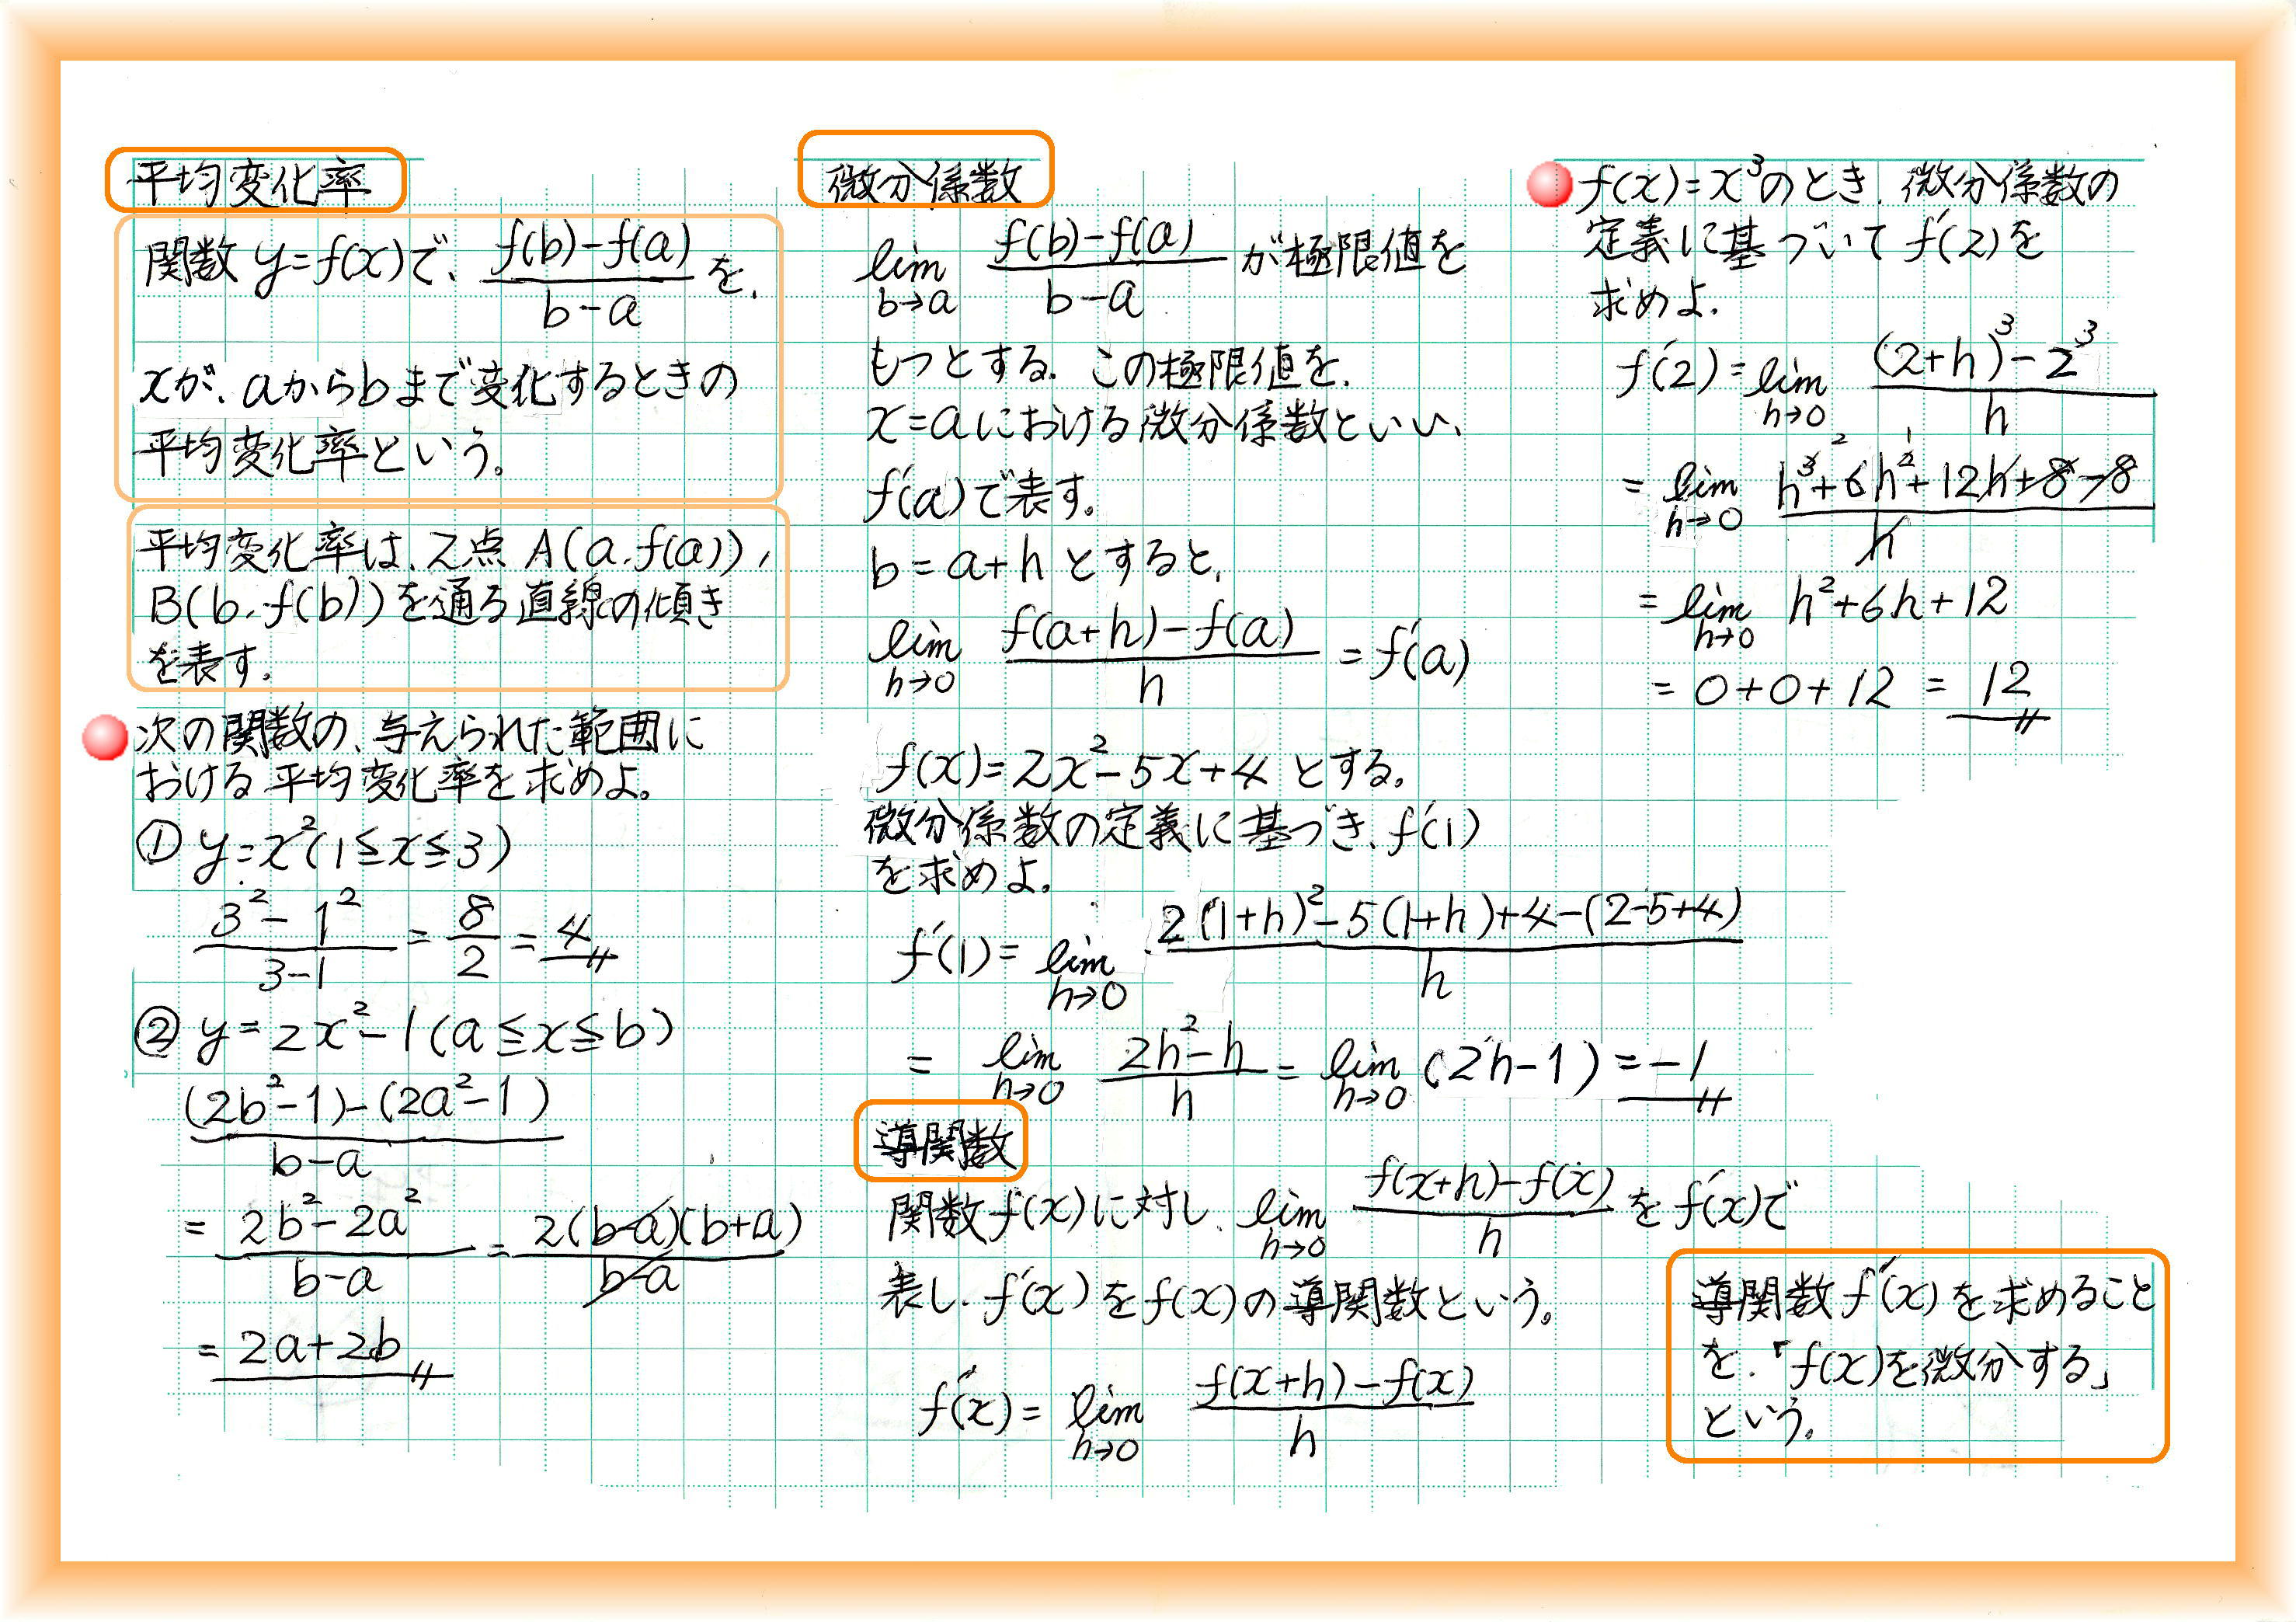 平均変化率
関数 y=f(x)で、 \frac{f(b)-f(a)}{b-a} を、
xが、aからbまで変化するときの
平均変化率という。
平均変化率は、2点 A(a, f(a)),
B(b, f(b))を通る直線の傾き
を表す。
次の関数の、与えられた範囲に
おける平均変化率を求めよ。
① y=x^2(1≦x≦3)
\frac{3^2-1^2}{3-1} = \frac{8}{2} = 4
② y=2x^2-1(a≦x≦b)
\frac{(2b^2-1)-(2a^2-1)}{b-a}
= \frac{2b^2-2a^2}{b-a} = \frac{2(b-a)(b+a)}{b-a}
= 2a+2b
微分係数
\lim_{b→a} \frac{f(b)-f(a)}{b-a} が極限値を
もつとする。この極限値を、
x=aにおける微分係数といい、
f'(a)で表す。
b=a+hとすると、
\lim_{h→0} \frac{f(a+h)-f(a)}{h} = f'(a)
f(x)=2x^2-5x+4とする。
微分係数の定義に基づき、f'(1)
を求めよ。
f'(1)= \lim_{h→0} \frac{2(1+h)^2-5(1+h)+4-(2-5+4)}{h}
= \lim_{h→0} \frac{2h^2-h}{h} = \lim_{h→0} (2h-1) = -1
導関数
関数f(x)に対し、 \lim_{h→0} \frac{f(x+h)-f(x)}{h} をf'(x)で
表し、f'(x)をf(x)の導関数という。
f'(x)= \lim_{h→0} \frac{f(x+h)-f(x)}{h}
f(x)=x^3のとき、微分係数の
定義に基づいてf'(2)を
求めよ.
f'(2)= \lim_{h→0} \frac{(2+h)^3-2^3}{h}
= \lim_{h→0} \frac{h^3+6h^2+12h+8-8}{h}
= \lim_{h→0} h^2+6h+12
= 0+0+12 = 12
導関数f'(x)を求めること
を、「f(x)を微分する」
という。